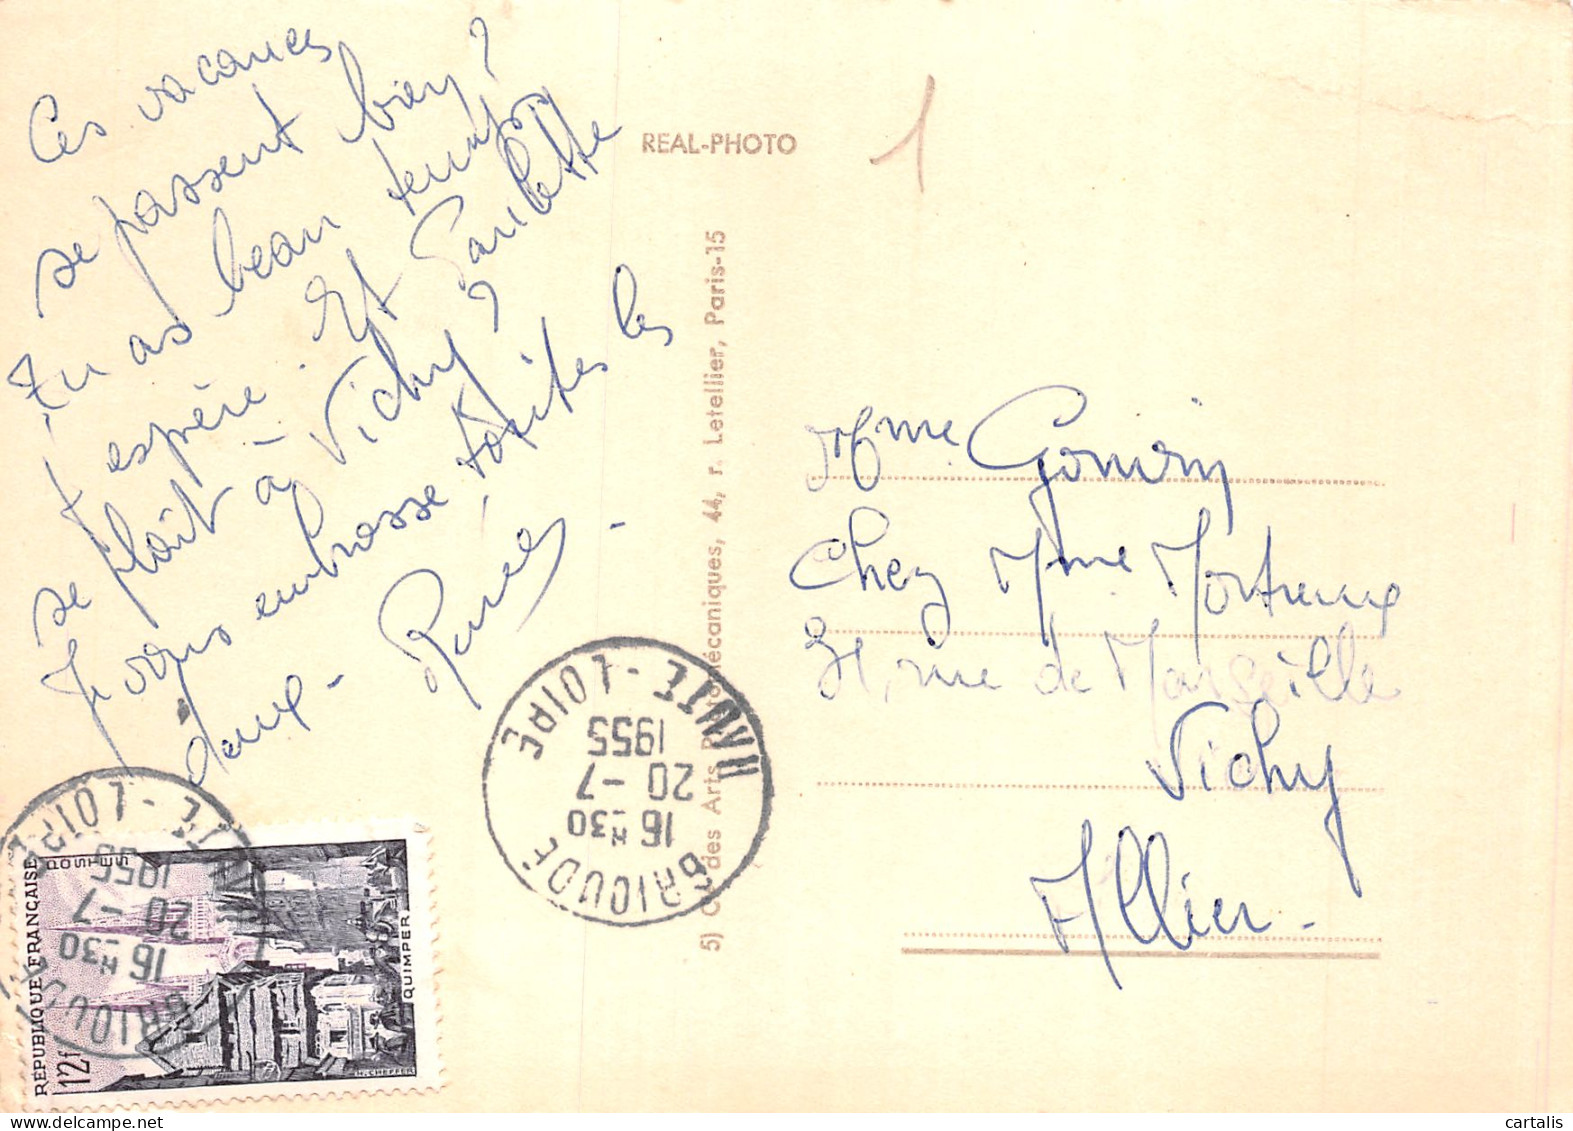 Ces vacances
se passent bien ?
Tu as beau temps
j espère. Et Paulette
se plaît à Vichy ?
Je vous embrasse toutes les
deux -
Renée -
REAL-PHOTO
1
5) C des Arts Photomécaniques, 44, r. Letellier, Paris-15
Mme
Chez Mme
rue de Marseille
Vichy
Allier -
HAUTE - LOIRE
1955
20 - 7
16 H 30
BRIOUDE
HAUTE - LOIRE
1955
20 - 7
16 H 30
BRIOUDE
RÉPUBLIQUE FRANÇAISE
POSTES
12f
QUIMPER
H. CHEFFER
cartalis